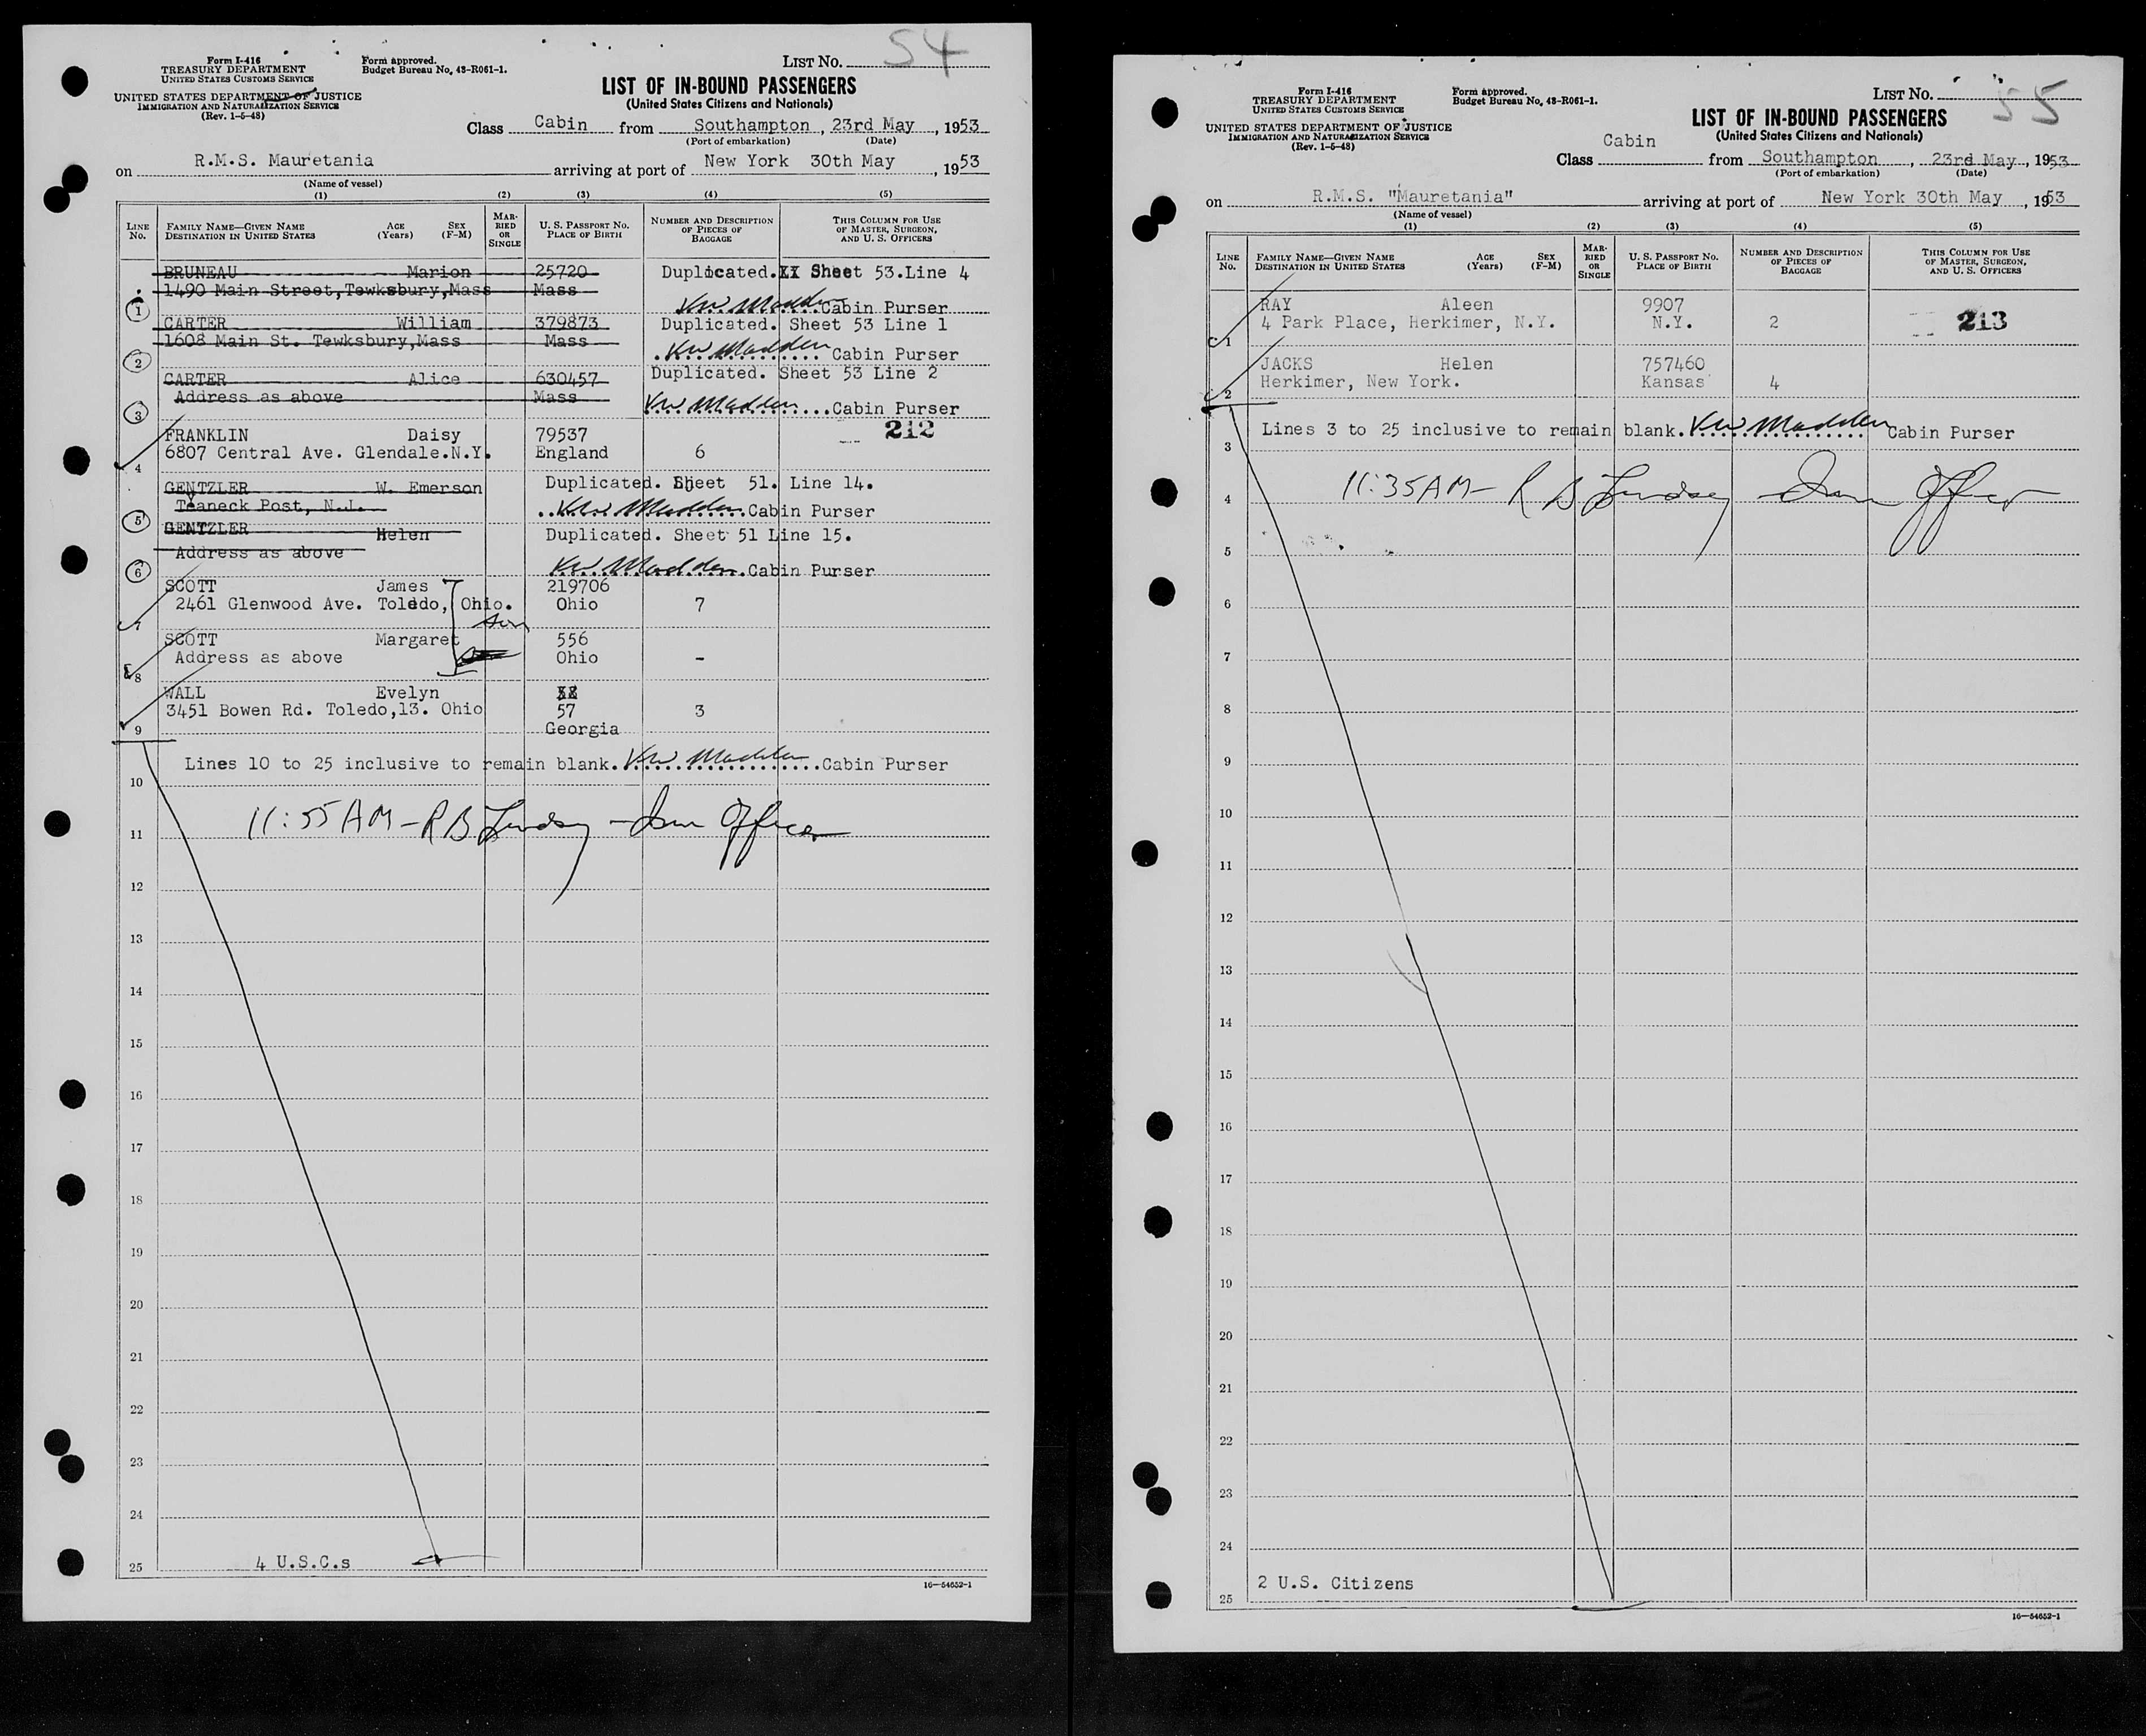 54
Form I-416
TREASURY DEPARTMENT
UNITED STATES CUSTOMS SERVICE
UNITED STATES DEPARTMENT OF JUSTICE
IMMIGRATION AND NATURALIZATION SERVICE
(Rev. 1-5-48)
Form approved.
Budget Bureau No. 43-R061-1.
LIST No.
LIST OF IN-BOUND PASSENGERS
(United States Citizens and Nationals)
Class Cabin from Southampton, 23rd May, 1953
(Port of embarkation) (Date)
on R.M.S. Mauretania arriving at port of New York 30th May, 1953
(Name of vessel)
(1) (2) (3) (4) (5)
LINE No. FAMILY NAME—GIVEN NAME DESTINATION IN UNITED STATES AGE (Years) SEX (F-M) MARRIED OR SINGLE U. S. PASSPORT No. PLACE OF BIRTH NUMBER AND DESCRIPTION OF PIECES OF BAGGAGE THIS COLUMN FOR USE OF MASTER, SURGEON, AND U. S. OFFICERS
BRUNEAU Marion 25720 Duplicated. Sheet 53.Line 4
1490 Main Street,Tewksbury,Mass Mass
1 KW Madden Cabin Purser
CARTER William 379873 Duplicated. Sheet 53 Line 1
1608 Main St. Tewksbury,Mass Mass
2 KW Madden Cabin Purser
CARTER Alice 630457 Duplicated. Sheet 53 Line 2
Address as above Mass
3 KW Madden Cabin Purser
FRANKLIN Daisy 79537 212
6807 Central Ave. Glendale.N.Y. England 6
4
GENTZLER W. Emerson Duplicated. Sheet 51. Line 14.
Teaneck Post, N.J.
5 KW Madden Cabin Purser
GENTZLER Helen Duplicated. Sheet 51 Line 15.
Address as above
6 KW Madden Cabin Purser
SCOTT James 219706
2461 Glenwood Ave. Toledo, Ohio. Ohio 7
7 son
SCOTT Margaret 556
Address as above Ohio -
8
WALL Evelyn
3451 Bowen Rd. Toledo,13. Ohio 57 3
9 Georgia
Lines 10 to 25 inclusive to remain blank. KW Madden Cabin Purser
10
11:55 AM - R B Lindsay - Imm Officer
11
12
13
14
15
16
17
18
19
20
21
22
23
24
25 4 U.S.C.s
16—54652-1
55
Form I-416
TREASURY DEPARTMENT
UNITED STATES CUSTOMS SERVICE
UNITED STATES DEPARTMENT OF JUSTICE
IMMIGRATION AND NATURALIZATION SERVICE
(Rev. 1-5-48)
Form approved.
Budget Bureau No. 43-R061-1.
LIST No.
LIST OF IN-BOUND PASSENGERS
(United States Citizens and Nationals)
Class Cabin from Southampton, 23rd May, 1953
(Port of embarkation) (Date)
on R.M.S. "Mauretania" arriving at port of New York 30th May, 1953
(Name of vessel)
(1) (2) (3) (4) (5)
LINE No. FAMILY NAME—GIVEN NAME DESTINATION IN UNITED STATES AGE (Years) SEX (F-M) MARRIED OR SINGLE U. S. PASSPORT No. PLACE OF BIRTH NUMBER AND DESCRIPTION OF PIECES OF BAGGAGE THIS COLUMN FOR USE OF MASTER, SURGEON, AND U. S. OFFICERS
RAY Aleen 9907
4 Park Place, Herkimer, N.Y. N.Y. 2 213
1
JACKS Helen 757460
Herkimer, New York. Kansas 4
2
Lines 3 to 25 inclusive to remain blank. KW Madden Cabin Purser
3
11:35AM - R B Lindsay - Imm Officer
4
5
6
7
8
9
10
11
12
13
14
15
16
17
18
19
20
21
22
23
24
2 U.S. Citizens
25
16—54652-1